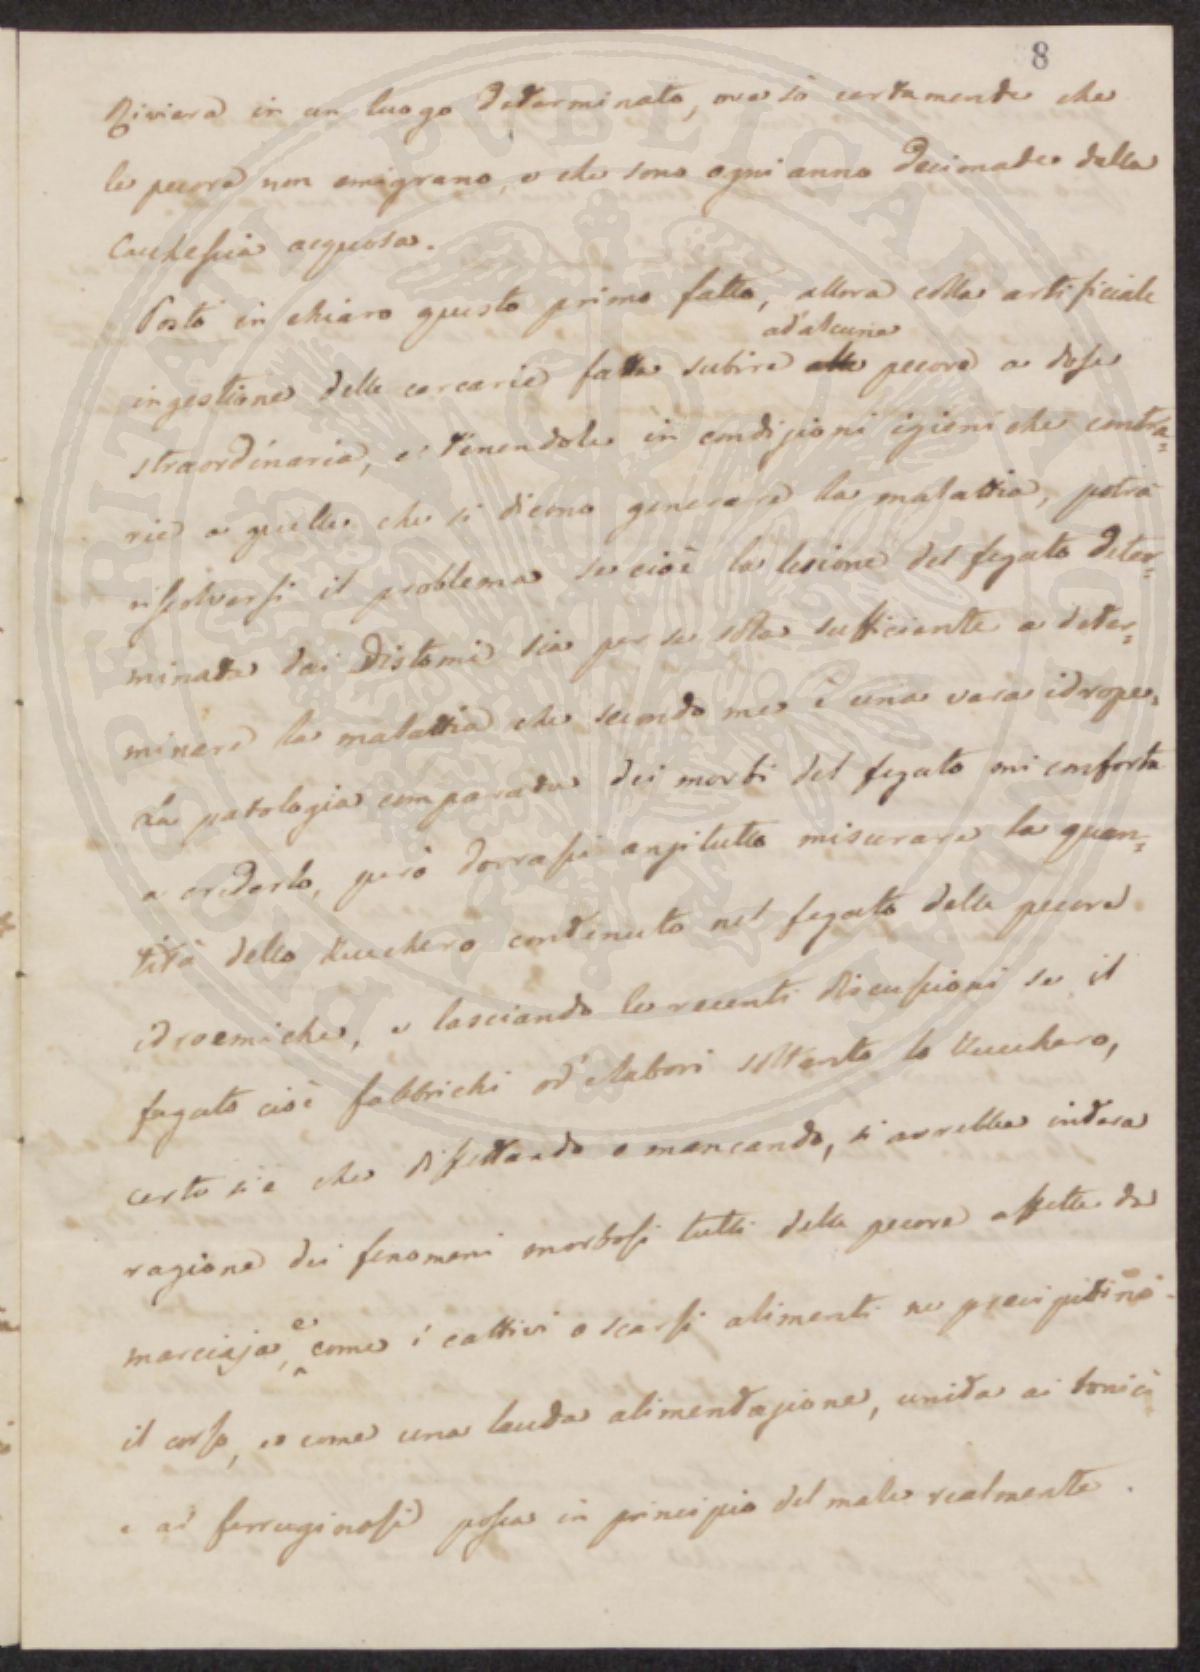 8
Riviera in un luogo determinato, ma sò certamente che
le pecore non emigrano, e che sono ogni anno decimate dalla
Cachessia acquosa.
Posto in chiaro questo primo fatto, allora colla artificiale
ad alcune
ingestione delle cercarie fatta subire alle pecore a dose
straordinaria, e tenendole in condizioni igieniche contra=
rie a quelle che si dicono generare la malattia, potrà
risolversi il problema se cioè la lesione del fegato deter=
minata dai Distomi sia per se sola sufficiente a deter=
minare la malattia che secondo me è una vera idrope.
La patologia comparata dei morbi del fegato mi conforta
a crederlo, però dorrassi anzitutto misurare la quan=
tità dello zucchero contenuto nel fegato delle pecore
idroemiche, e lasciando le recenti discussioni se il
fegato cioè fabbrichi od elabori soltanto lo zucchero,
certo si è che difettando o mancando, si avrebbe intera
ragione dei fenomeni morbosi tutti delle pecore affette da
marciaja, e come i cattivi o scarsi alimenti ne precipitino
il corso, e come una lauta alimentazione, unita ai tonici
e ai ferruginosi possa in principio del male realmente